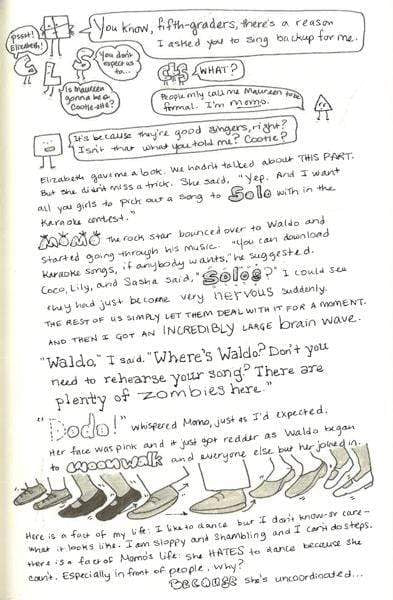 pssst!
Elizabeth!
You know, fifth-graders, there's a reason
I asked you to sing backup for me.
C L S
You don't
expect us
to...
WHAT?
Is Maureen
gonna be a
Cootie-tte?
People only call me Maureen to be
formal. I'm Momo.
It's because they're good singers, right?
Isn't that what you told me? Cootie?
Elizabeth gave me a look. We hadn't talked about THIS PART.
But she didn't miss a trick. She said, "Yep. And I want
all you girls to pick out a song to Solo with in the
karaoke contest."
MOMO the rock star bounced over to Waldo and
started going through his music. "You can download
karaoke songs, if anybody wants," he suggested.
Coco, Lily, and Sasha said, "Solos?" I could see
they had just become very nervous suddenly.
THE REST OF US SIMPLY LET THEM DEAL WITH IT FOR A MOMENT.
AND THEN I GOT AN INCREDIBLY LARGE brain wave.
"Waldo," I said. "Where's Waldo? Don't you
need to rehearse your song? There are
plenty of zombies here."
"Dodo!" whispered Momo, just as I'd expected.
Her face was pink and it just got redder as Waldo began
to moonwalk and everyone else but her joined in.
Here is a fact of my life: I like to dance but I don't know–or care–
what it looks like. I am sloppy and shambling and I can't do steps.
there is a fact of Momo's life: she HATES to dance because she
can't. Especially in front of people. Why?
BECAUSE she's uncoordinated...